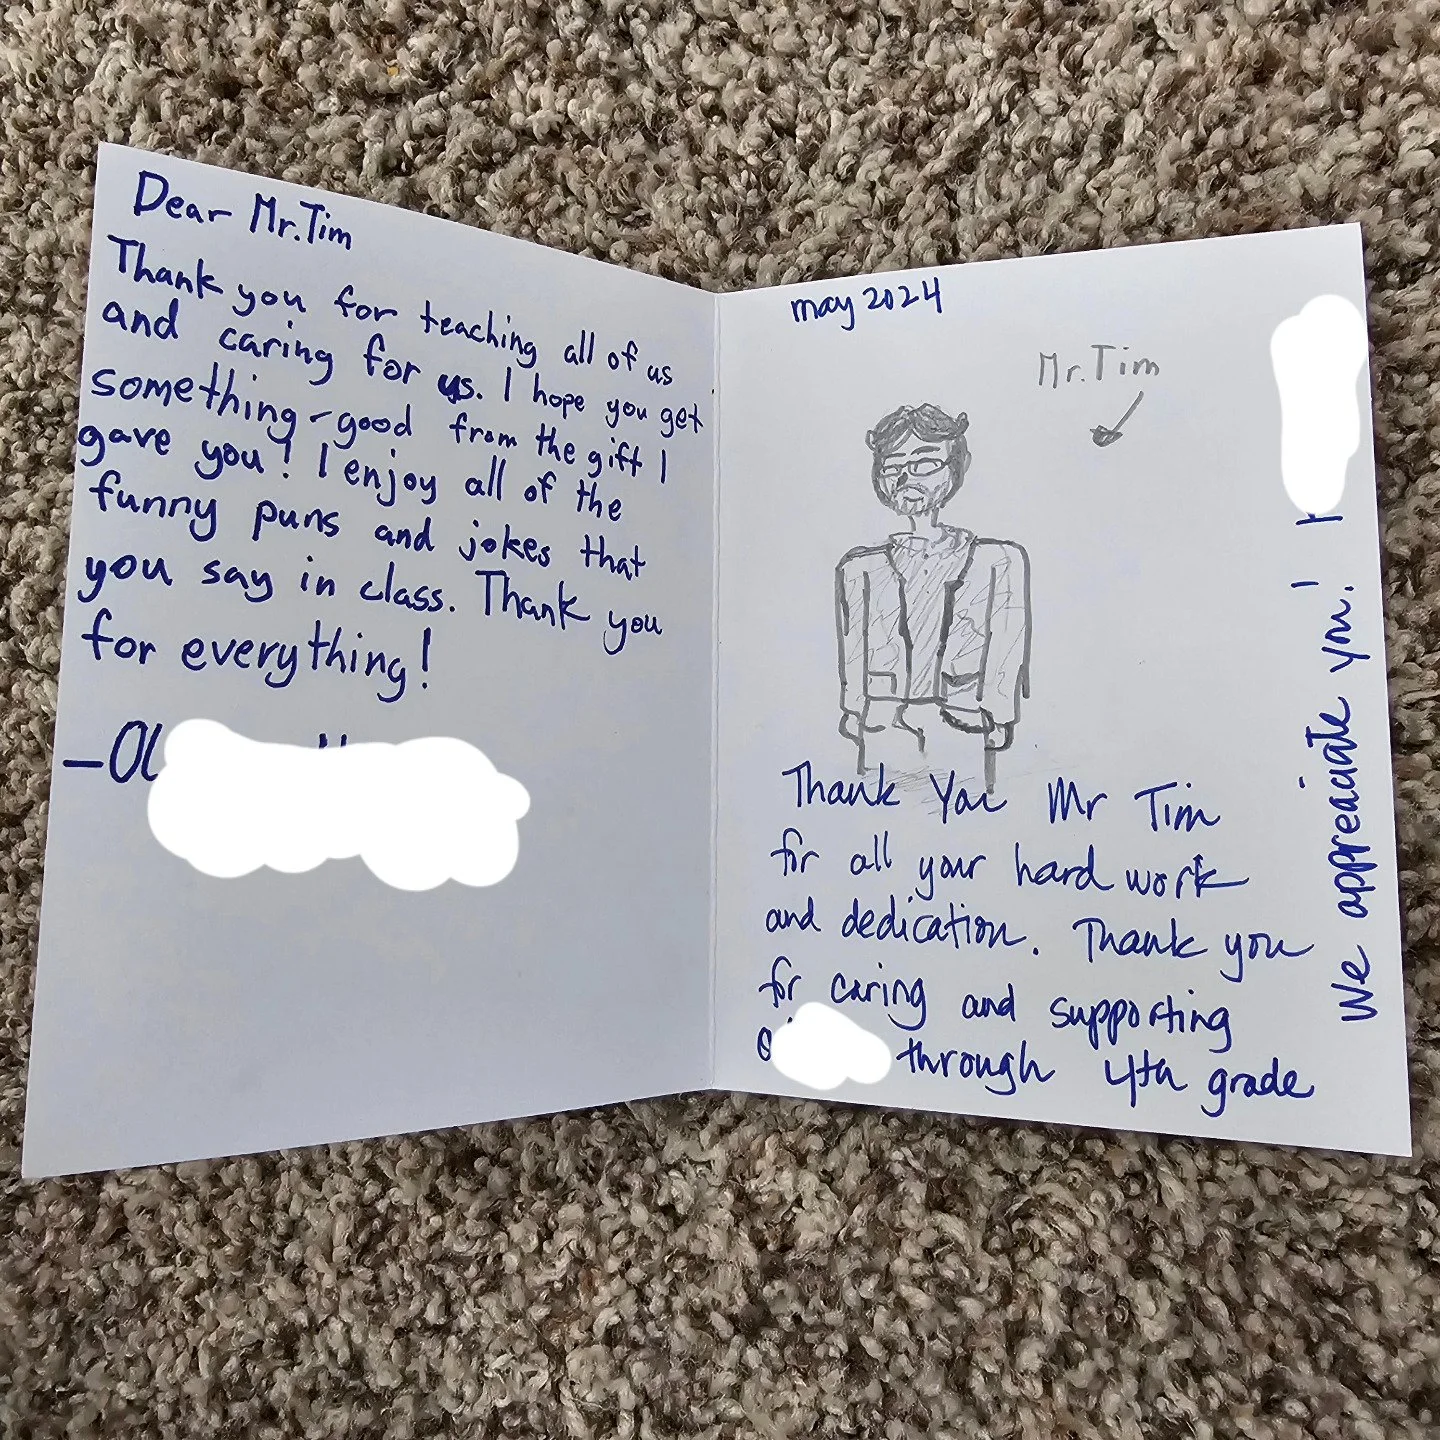 Dear Mr. Tim
Thank you for teaching all of us
and caring for us. I hope you get
something-good from the gift I
gave you! I enjoy all of the
funny puns and jokes that
you say in class. Thank you
for everything!
may 2024
Mr. Tim
Thank You Mr Tim
for all your hard work
and dedication. Thank you
for caring and supporting
through 4th grade
We appreaciate you!